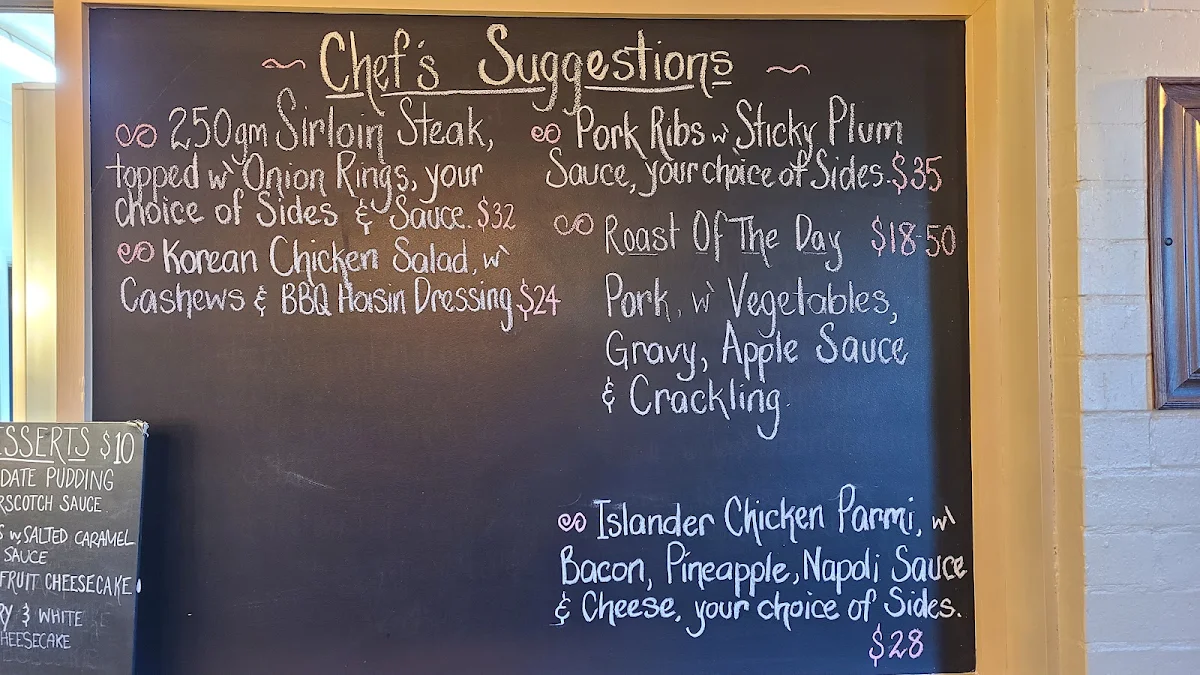 Chef's Suggestions
250gm Sirloin Steak,
topped w' Onion Rings, your
choice of Sides & Sauce. $32
Korean Chicken Salad, w'
Cashews & BBQ Hoisin Dressing $24
Pork Ribs w' Sticky Plum
Sauce, your choice of Sides. $35
Roast Of The Day $18-50
Pork, w' Vegetables,
Gravy, Apple Sauce
& Crackling.
Islander Chicken Parmi, w'
Bacon, Pineapple, Napoli Sauce
& Cheese, your choice of Sides.
$28
ESSERTS $10
DATE PUDDING
RSCOTCH SAUCE
S w SALTED CARAMEL
SAUCE
FRUIT CHEESECAKE
RY & WHITE
HEESECAKE